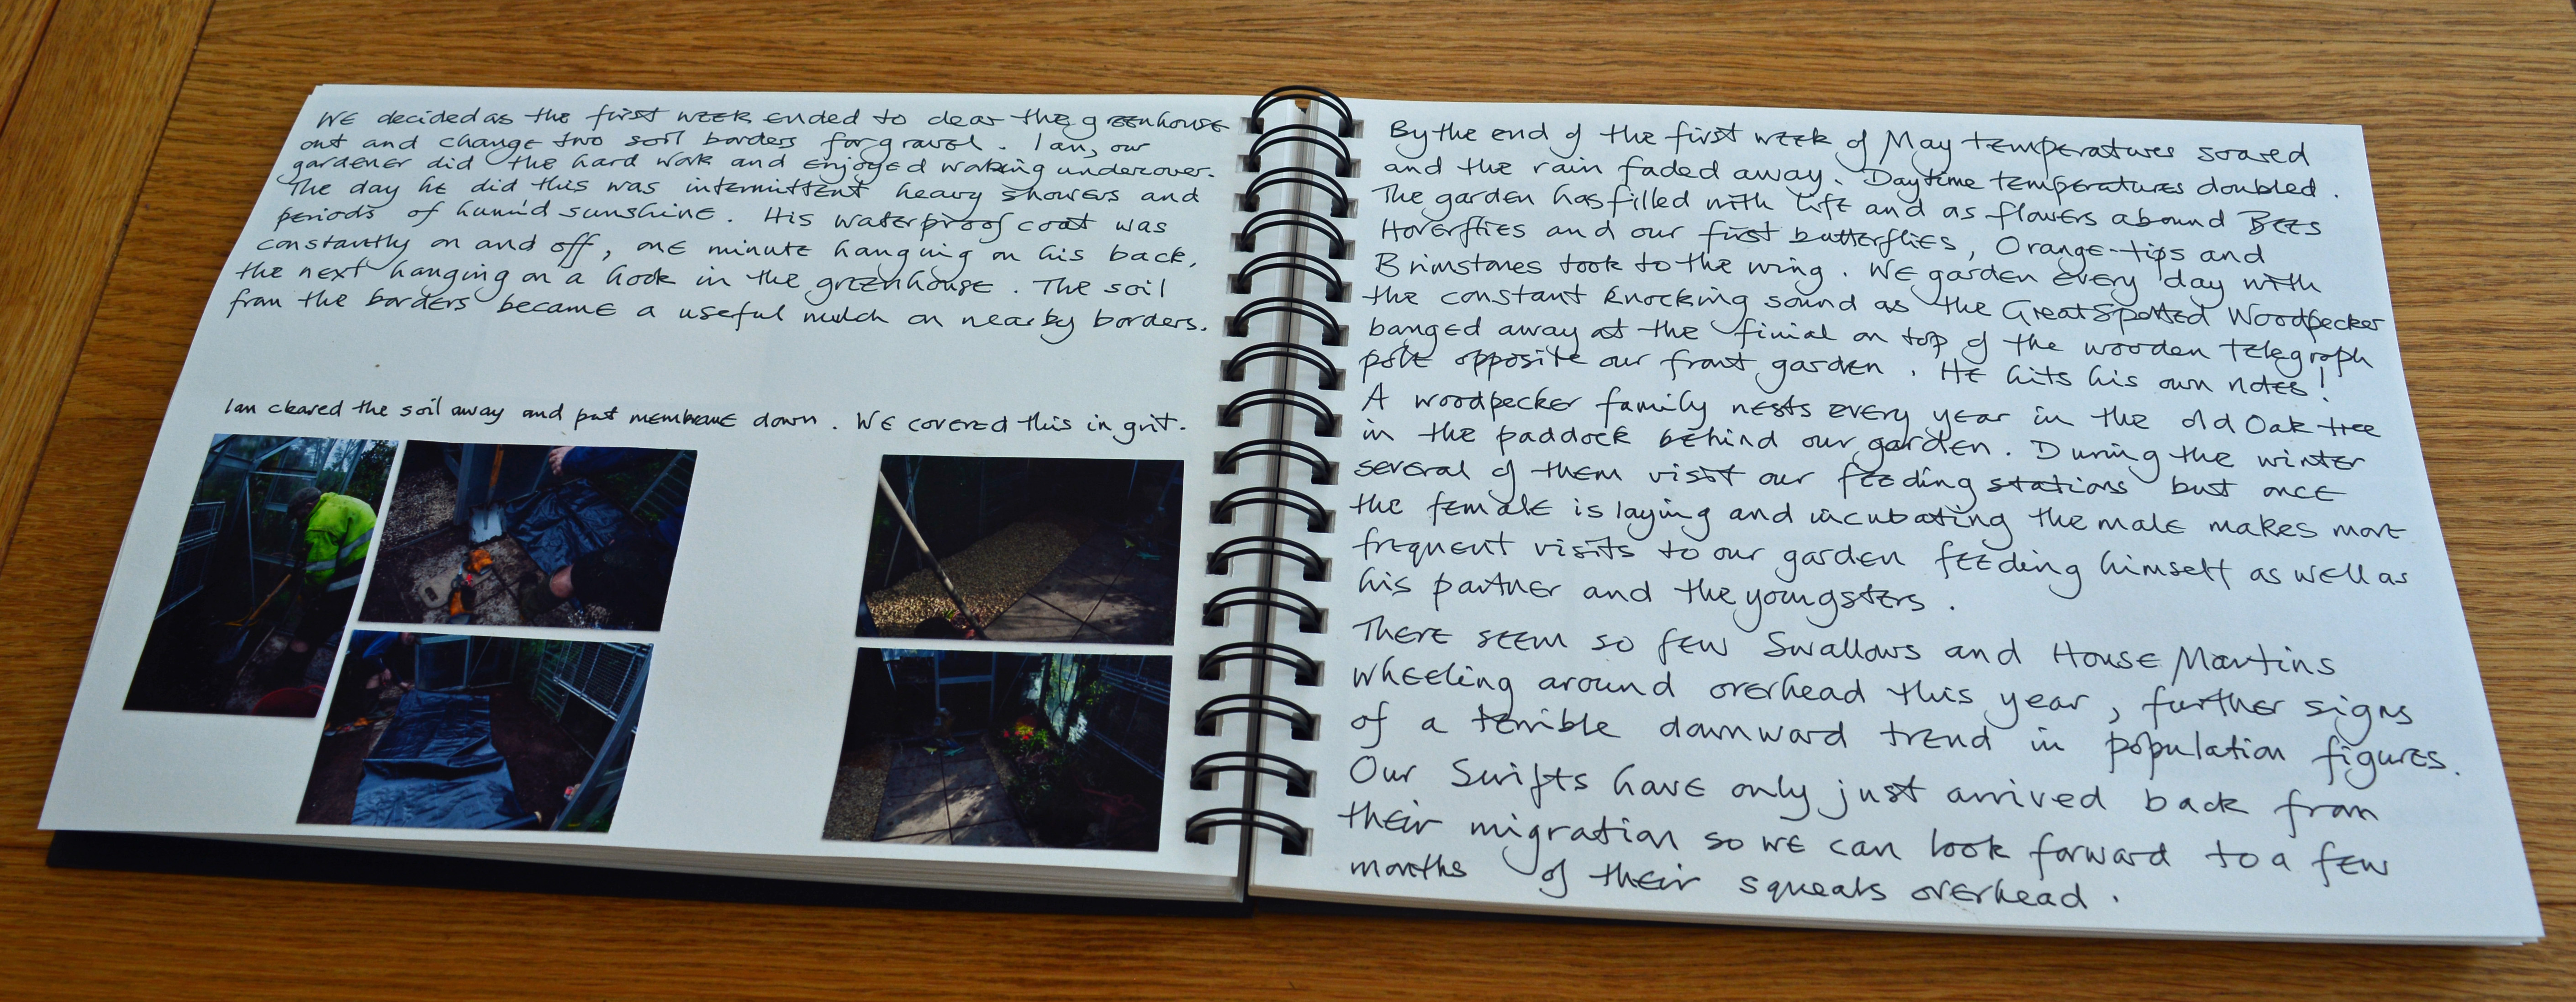 We decided as the first week ended to clear the greenhouse
out and change two soil borders for gravel. Ian, our
gardener did the hard work and enjoyed working undercover.
The day he did this was intermittent heavy showers and
periods of humid sunshine. His waterproof coat was
constantly on and off, one minute hanging on his back,
the next hanging on a hook in the greenhouse. The soil
from the borders became a useful mulch on nearby borders.
Ian cleared the soil away and put membrane down. We covered this in grit.
By the end of the first week of May temperatures soared
and the rain faded away. Daytime temperatures doubled.
The garden has filled with life and as flowers abound Bees
Hoverflies and our first butterflies, Orange-tips and
Brimstones took to the wing. We garden every day with
the constant knocking sound as the Great Spotted Woodpecker
banged away at the finial on top of the wooden telegraph
pole opposite our front garden. He hits his own notes!
A woodpecker family nests every year in the old Oak tree
in the paddock behind our garden. During the winter
several of them visit our feeding stations but once
the female is laying and incubating the male makes more
frequent visits to our garden feeding himself as well as
his partner and the youngsters.
There seem so few Swallows and House Martins
wheeling around overhead this year, further signs
of a terrible downward trend in population figures.
Our Swifts have only just arrived back from
their migration so we can look forward to a few
months of their squeals overhead.